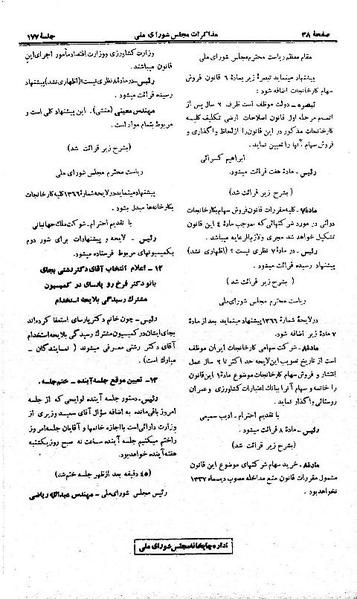 صفحهٔ ۳۸
مذاکرات مجلس شورای ملی
جلسهٔ ۱۷۷
مقام معظم ریاست محترم مجلس شورای ملی
پیشنهاد مینماید تبصرهٔ زیر بمادهٔ ۶ قانون فروش
سهام کارخانجات اضافه شود:
تبصره ـ دولت موظف است ظرف ۲ سال پس از
اتمام مرحله اول قانون اصلاحات ارضی تکلیف کلیه
کارخانجات مذکور در این قانون را از لحاظ واگذاری و
فروش سهام آنها را تعیین نماید.
ابراهیم کسرائی
رئیس ـ مادهٔ هفت قرائت میشود.
(بشرح زیر قرائت شد)
مادهٔ ۷ـ کلیه مقررات قانون فروش سهام کارخانجات
دولتی در مورد شرکتهائی که بموجب مادهٔ ۴ این قانون
تشکیل خواهد شد مجری و لازم الرعایه میباشد.
رئیس ـ در مادهٔ ۷ نظری نیست؟ (اظهاری نشد)
پیشنهاد رسیده قرائت میشود.
(بشرح زیر قرائت شد)
ریاست محترم مجلس شورای ملی
در لایحهٔ شمارهٔ ۱۳۶۶ پیشنهاد مینماید بعد از مادهٔ
۷ مادهٔ زیر اضافه شود.
مادهٔ ـ شرکت سهامی کارخانجات ایران موظف
است از تاریخ تصویب این لایحه حداکثر تا ۲ سال عمل
انتشار و فروش سهام کارخانجات موضوع مادهٔ ۱ این قانون
را خاتمه و سهام آنرا ببانک اعتبارات کشاورزی و عمران
روستائی واگذار نماید.
با تقدیم احترام ـ ادیب سمیعی
رئیس ـ مادهٔ ۸ قرائت میشود.
(بشرح زیر قرائت شد)
مادهٔ ۸ـ خرید سهام شرکتهای موضوع این قانون
مشمول مقررات قانون منع مداخله مصوب دیماه ۱۳۳۷
نخواهد بود.
وزارت کشاورزی و وزارت اقتصاد مأمور اجرای این
قانون میباشند.
رئیس ـ در مادهٔ ۸ نظری نیست؟ (اظهاری نشد) پیشنهاد
رسیده قرائت میشود.
مهندس معینی (منشی) ـ این پیشنهاد کلی است و
مربوط بتمام مواد است.
(بشرح زیر قرائت شد)
ریاست محترم مجلس شورای ملی
پیشنهاد مینماید در لایحهٔ شمارهٔ ۱۳۶۶ کلیه کارخانجات
بکارخانه‌ها مبدل بشود.
با تقدیم احترام. شوکت ملک جهانبانی
رئیس ـ لایحه و پیشنهادات برای شور دوم
بکمیسیونهای مربوط فرستاده میشود.
۱۲ـ اعلام انتخاب آقای دکتر رشتی بجای
بانو دکتر فرخ رو پارسای در کمیسیون
مشترک رسیدگی بلایحه استخدام
رئیس ـ چون خانم دکتر پارسای استعفا کرده‌اند
بجای ایشان در کمیسیون مشترک رسیدگی بلایحه استخدام
آقای دکتر رشتی معرفی میشوند (نمایندگان ـ
مبارک است).
۱۳ـ تعیین موقع جلسه آینده ـ ختم جلسه.
رئیس ـ دستور جلسه آینده لوایحی که از جلسه
امروز باقی مانده، به اضافه سؤال آقای سعید وزیری از
وزارت دارائی است با اجازه خانمها و آقایان جلسه امروز
را ختم میکنیم جلسه آینده ساعت نه صبح روز یکشنبه
هفته آینده خواهد بود.
(۴۵ دقیقه بعد از ظهر جلسه ختم شد)
رئیس مجلس شورای ملی ـ مهندس عبدالله ریاضی
اداره چاپخانه مجلس شورای ملی